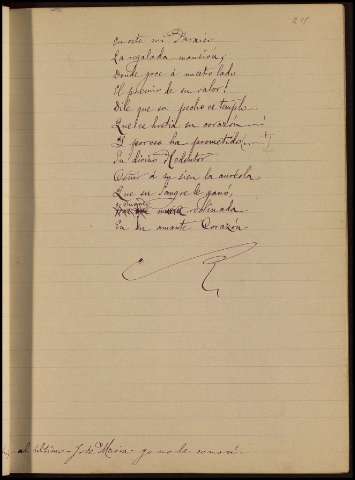 21
En este mi Paraiso
La regalada mansión;
Donde goce á nuestro lado
El premio de su valor!
Dile que su pecho es templo
Que es hostia su corazón
Y por eso ha prometido
Su divino Redentor
Ceñir á su sien la aureola
Que su sangre le ganó,
y duerme
reclinada
En su amante Corazón
al último - Jesús María - yo no le